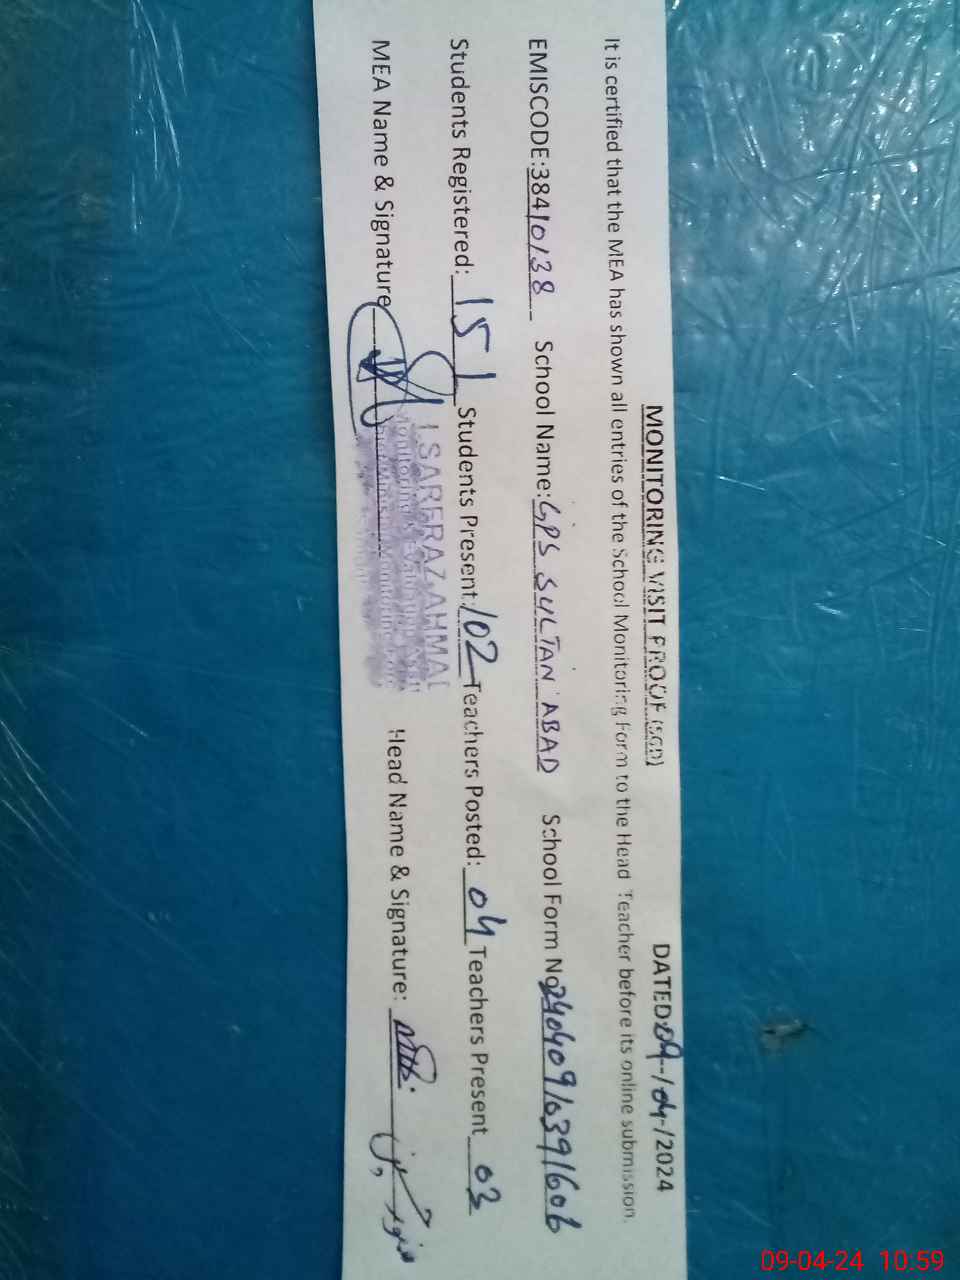 MONITORING VISIT PROOF (SGD) DATED:09-/04-/2024
It is certified that the MEA has shown all entries of the School Monitoring Form to the Head Teacher before its online submission.
EMISCODE:38410138 School Name: GPS SULTAN ABAD School Form No 240409103391606
Students Registered: 151 Students Present: 102 Teachers Posted: 04 Teachers Present 03
MEA Name & Signature Head Name & Signature:
SARFRAZ AHMAD
Monitoring & Evaluation
09-04-24 10:59